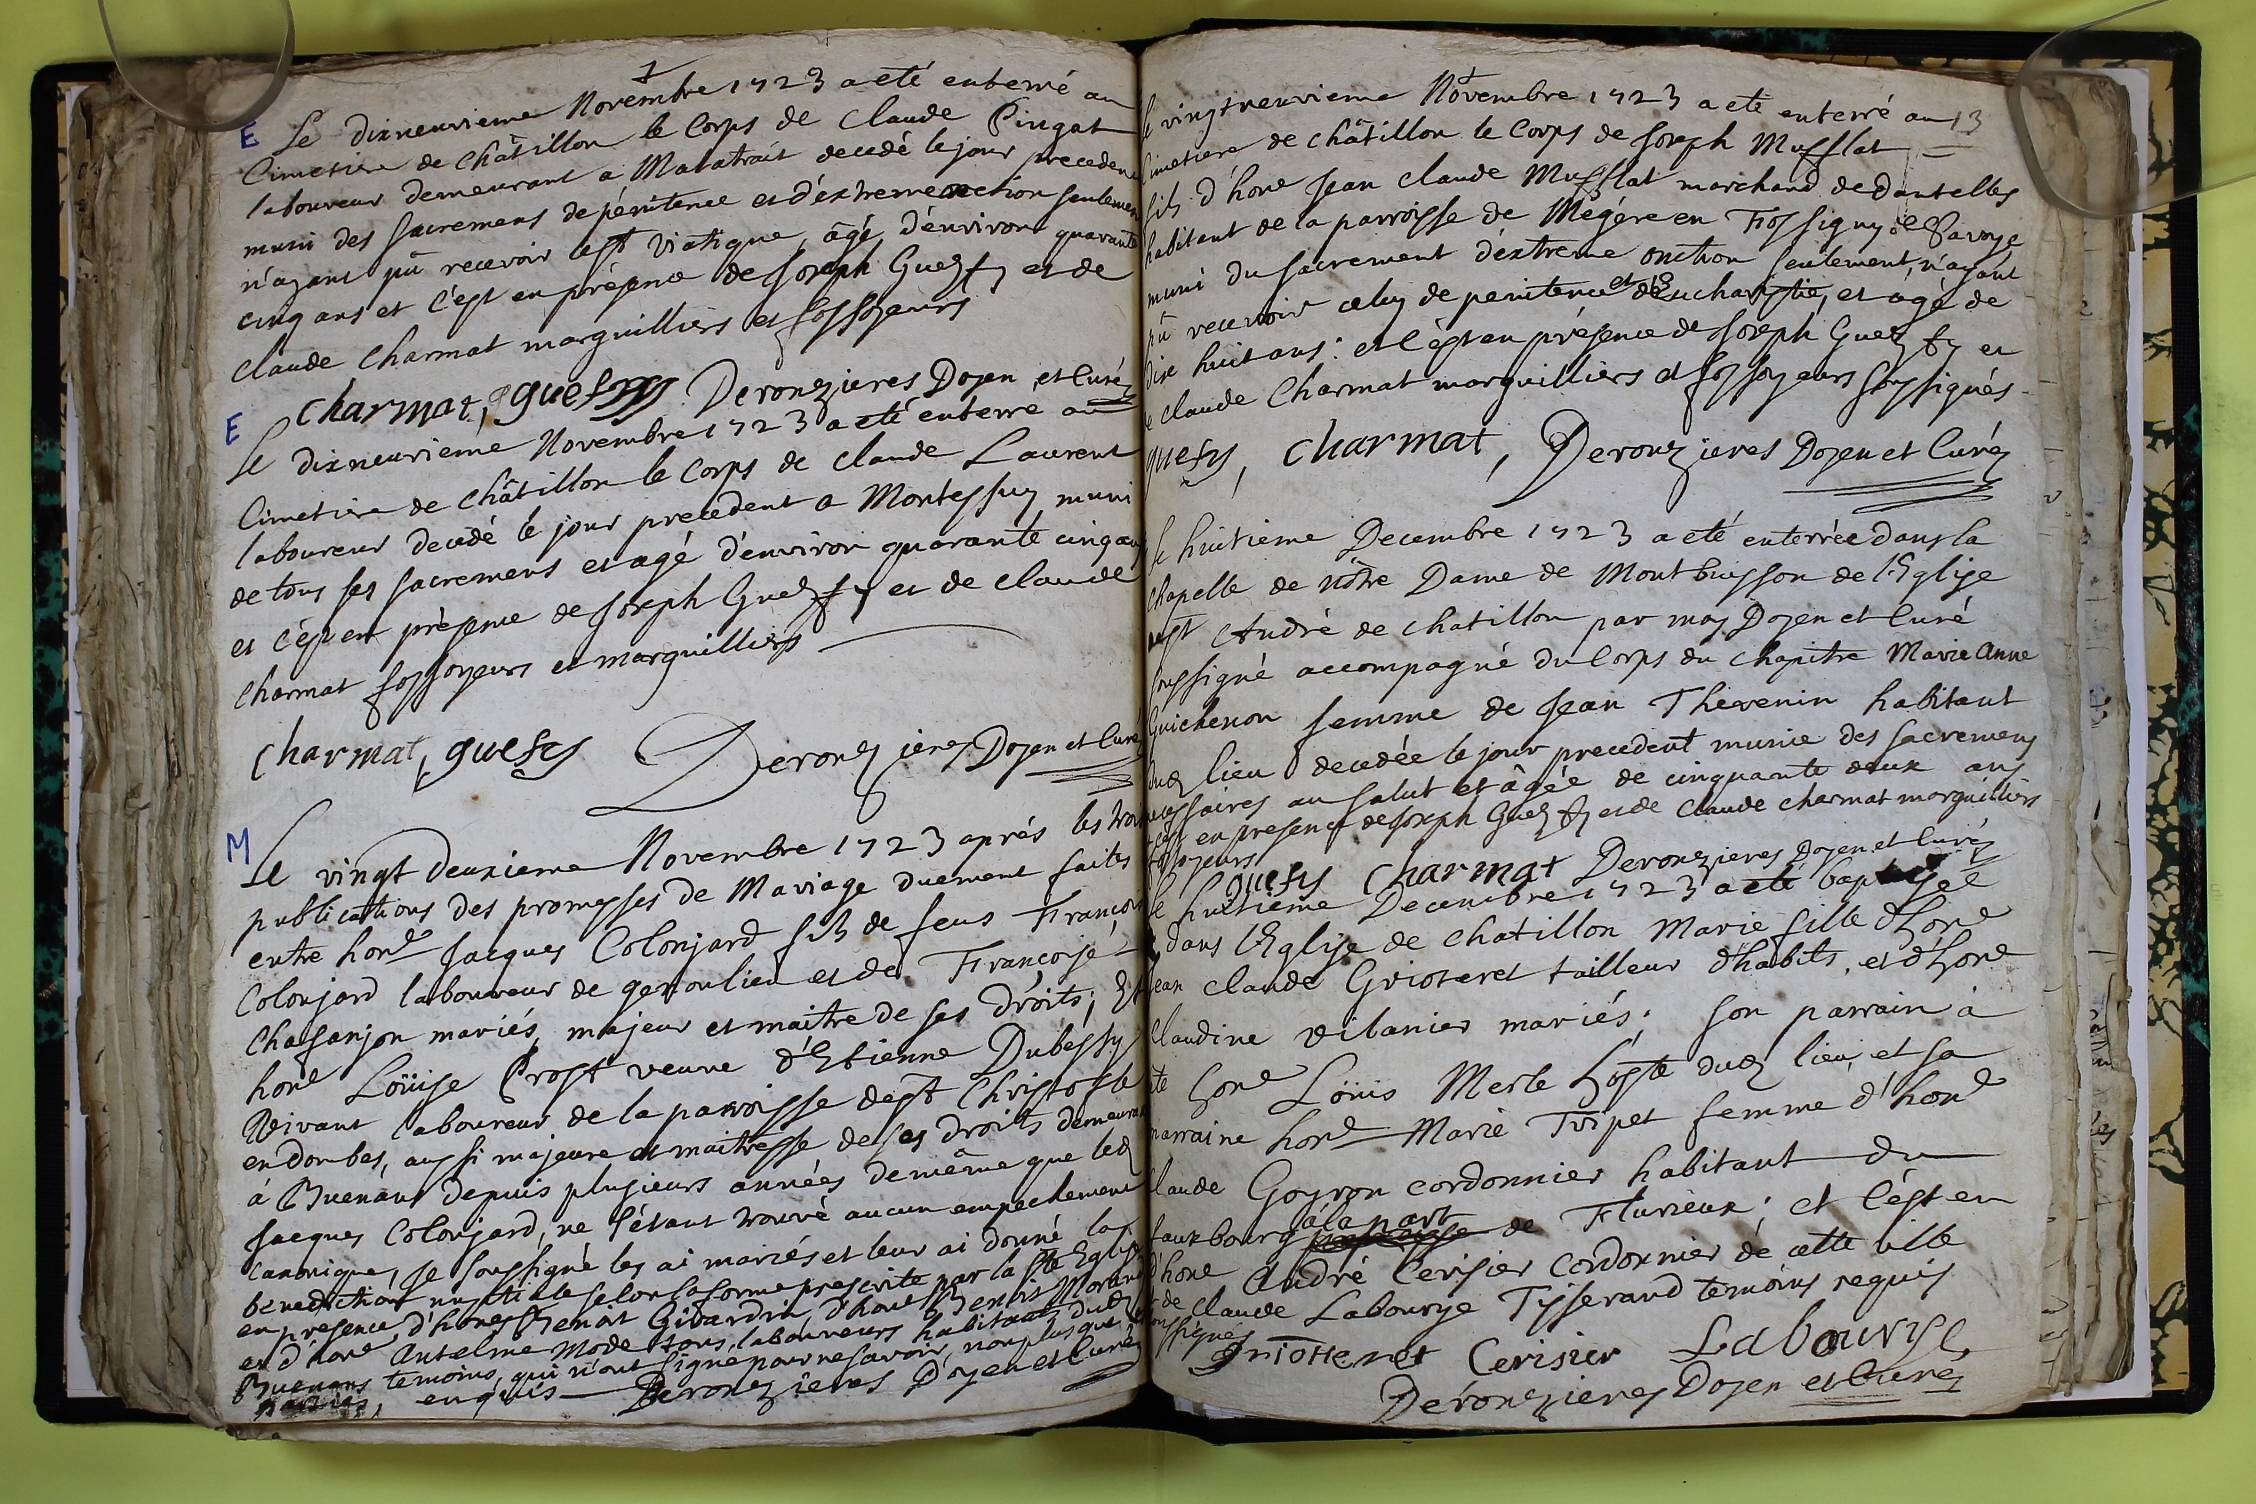 E Le dixneuvieme Novembre 1723 a eté enterré au
Cimetiere de Châtillon le Corps de Claude Pingat
laboureur demeurant a Matatrait decedé le jour precedent
muni des sacremens de pénitence et d'extremeonction seulement
n'ayant pû recevoir le st Viatique, âgé d'environ quarante
cinq ans et c'est en présence de Joseph Guezfy et de
Claude Charmat marguilliers et fossoyeurs
Charmat, guefys Deronzieres Doyen et Curé
E Le dixneuvieme Novembre 1723 a eté enterre au
Cimetiere de Châtillon le Corps de Claude Laurent
laboureur decedé le jour precedent a Montessuy muni
de tous ses sacremens et agé d'environ quarante cinq ans
et c'est en présence de Joseph Guezfy et de Claude
Charmat fossoyeurs et marguilliers
Charmat, guefys Deronzieres Doyen et Curé
M Le vingt deuxieme Novembre 1723 aprés les trois
publications des promesses de Mariage duement faites
entre hone Jacques Colonjard fils de feus François
Colonjard laboureur de genoulieu et de Françoise
Chasanjon mariés, majeur et maitre de ses droits; Et
hone Loüise Prost veuve d'Etienne Dubessy
Vivant laboureur de la parroisse de st Christofle
en dombes, aussi majeure et maitresse de ses droits demeurant
á Buenans depuis plusieurs années de même que led
Jacques Colonjard, ne s'étant trouvé aucun empechement
canonique, Je soussigné les ai mariés et leur ai donné la
benediction nuptiale selon la forme prescrite par la ste Eglise
en presence d'hones Benoit Girardin, d'hone Benoit Morand
et d'hone Antelme Mode tous laboureurs habitants dud
Buenans temoins, qui n'ont signé pour ne savoir, non plus que les
parties, enquis Deronzieres Doyen et Curé
13
le vingtneuvieme Novembre 1723 a eté enterré au
Cimetiere de Châtillon le Corps de Joseph Mufflat
fils d'hone Jean Claude Mufflat marchand de dantelles
habitant de la parroisse de Mégére en Fossigny de Savoye
muni du sacrement d'extreme onction seulement, n'ayant
pû recevoir celuy de penitence et d'Eucharistie, et âgé de
dix huit ans: et c'est en présence de Joseph Guezfy et
de Claude Charmat marguilliers et fossoyeurs soussignés
guefys, Charmat, Deronzieres Doyen et Curé
le huitieme Decembre 1723 a eté enterrée dans la
Chapelle de Nôtre Dame de Montbuisson de l'Eglise
de st André de chatillon par moy Doyen et Curé
soussigné accompagné du Corps du Chapitre Marie Anne
Guichenon femme de Jean Thevenin habitant
dud lieu decedée le jour precedent munie des sacremens
necessaires au salut et âgée de cinquante deux ans
c'est en presence de Joseph Guezfy et de Claude Charmat marguilliers
fossoyeurs
guefys Charmat Deronzieres Doyen et Curé
le huitieme Decembre 1723 a eté baptisée
dans l'Eglise de chatillon Marie fille d'hone
Jean Claude Grioteret tailleur d'habits, et d'hone
Claudine Vilanier mariés; son parrain à
eté hone Loüis Merle hoste dud lieu, et sa
marraine hone Marie Tripet femme d'hone
Claude Goyron cordonnier habitant du
fauxbourg à la part de Flurieux; et c'est en
d'hone André Cerisier Cordonnier de cette ville
et de Claude Labourye Tisserand temoins requis
soussignés
griotteret Cerisier Labourye
Deronzieres Doyen et Curé